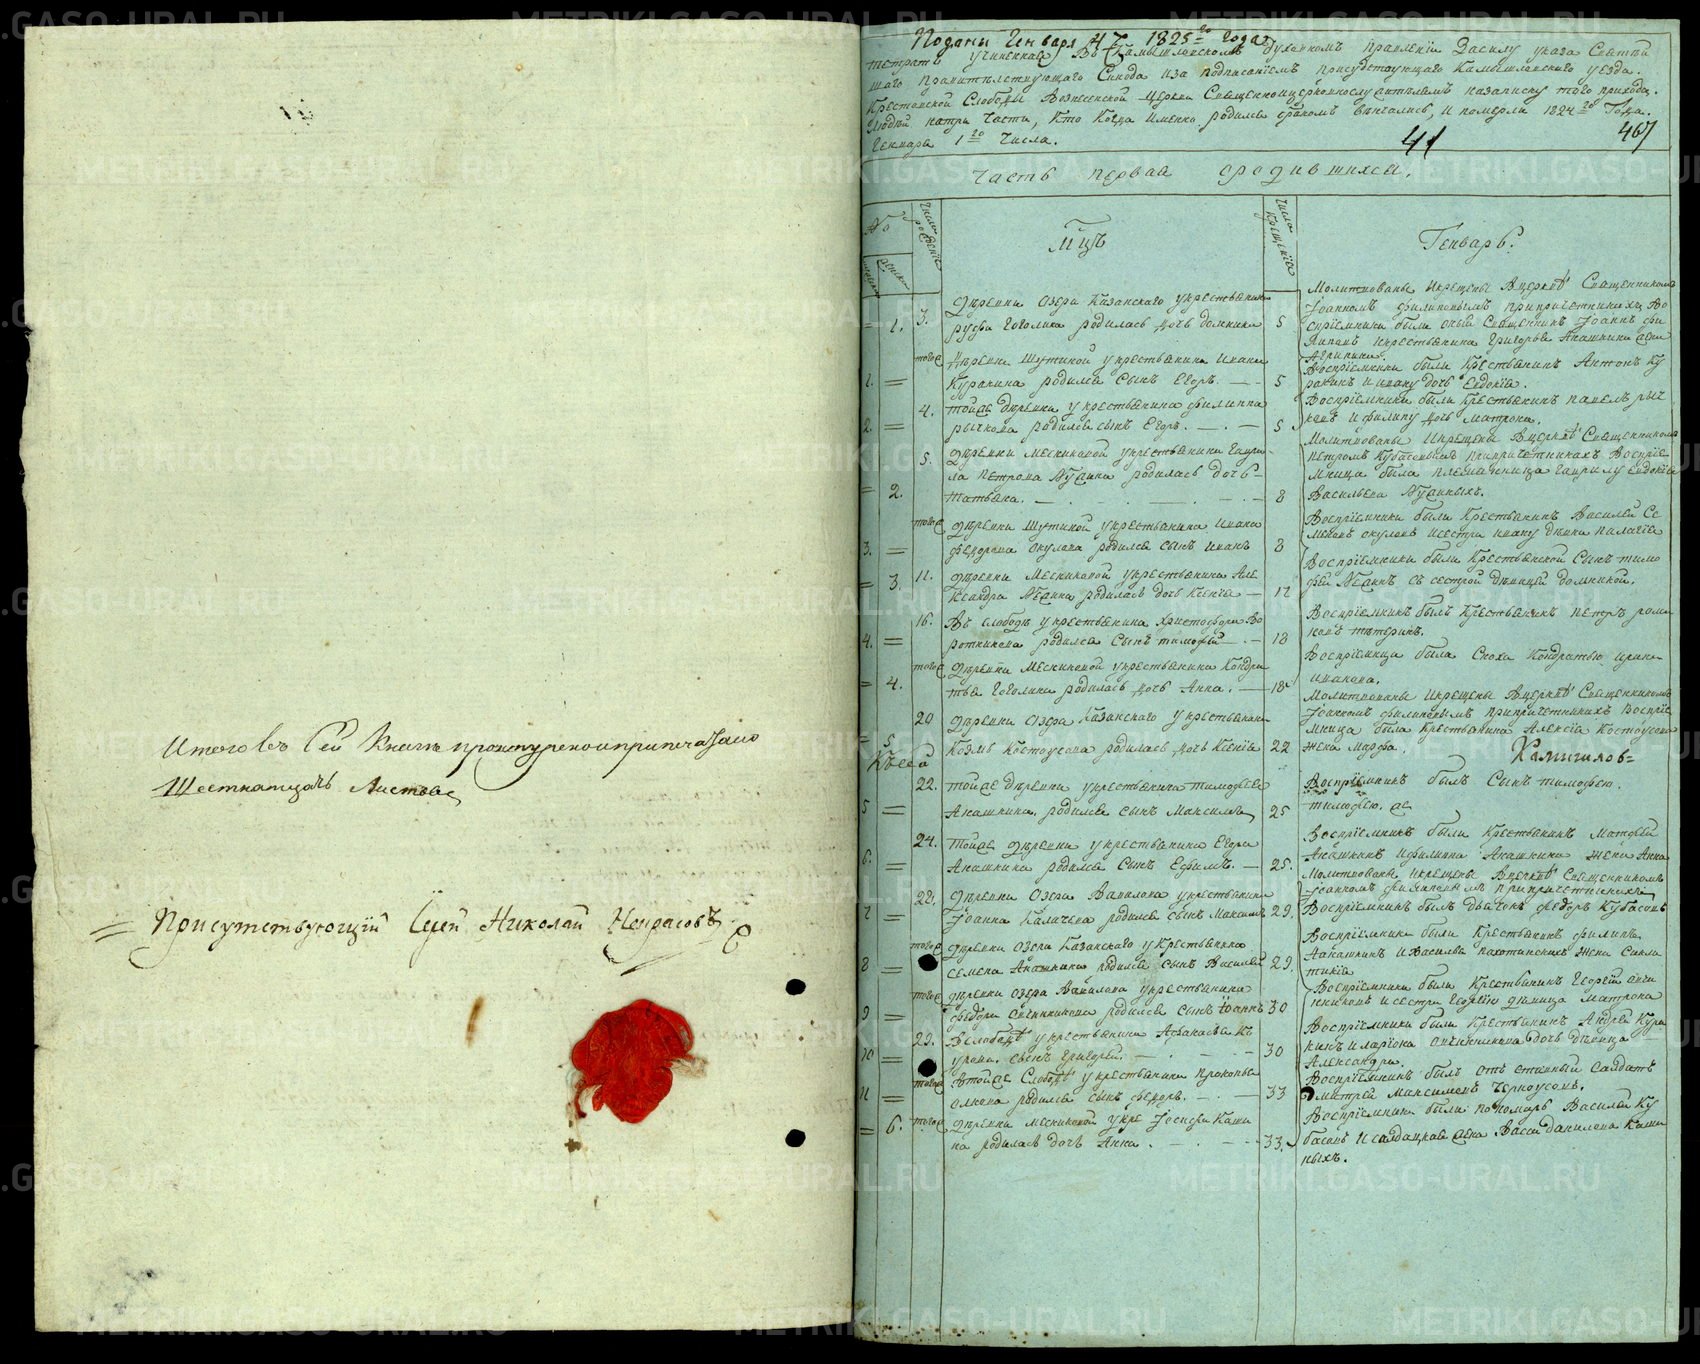 Итого въ сей книгѣ прошнурено и припечатано
Шестнатцать листовъ
Присутствующiй Iерей Николай Некрасовъ
Поданы Генваря 47 1825го года
тетрать учиненная во Камышловскомъ духовномъ правленiи Всилу указа Святѣй
шаго Правительствующаго Синода иза подписанiемъ присудствующаго Камышловскаго уезда.
Крестовской Слободы Вознесенской Церкви Священноцерковнослужителямъ назаписку того прихода.
Людей натри части, Кто Когда имянно родился бракомъ венчались, и померли 1824го Года.
Генваря 1го числа.
41
467
Часть первая о родившихся.
№
Числа рожденiя
Мцъ
Числа крещенiя
Генварь.
1. 3.
Деревни Озера Казанскаго укрестьянина
Гоголина родилась дочь домника 5
Молитвованы икрещены вцеркве Священникомъ
Iоанномъ Филиповымъ при причетникахъ Во
спрiемники были оныя Священникъ Iоаннъ фи
липовъ икрестьянина Григорья Анашкина жена
Агрипина.
1. того
Деревни Шутиной укрестьянина Ивана
Куракина родился сынъ Егоръ. 5
Воспрiемники были крестьянинъ Антонъ Ку
ракинъ дочь Евдокiя.
2. 4.
тойже деревни укрестьянина Филиппа
рычкова родился сынъ Егоръ. 5
Воспрiемники были Крестьянинъ Павелъ рыч
ковъ и Филипу дочь матрона.
2. 5.
Деревни Мясниковой укрестьянина Гаври
ла Петрова родилась дочь
татьяна. 8
Молитвованы икрещены вцеркве Священникомъ
Петромъ Кубасовымъ при причетникахъ Воспрiе
мница была племянница Гаврилу евдокiя
Васильева
3. того
деревни Шутиной укрестьянина Ивана
Федорова окулова родился сынъ иванъ 8
Воспрiемники были Крестьянинъ Василей Се
меновъ окуловъ исестра ивану девка палагiя
3. 11.
деревни Мясниковой укрестьянина Але
ксандра родилась дочь Ксенiя 17
Воспрiемники были Крестьянской Сынъ тимо
фей съ сестрой девицей домникой.
4. 16.
Въ слободе укрестьянина Христофора Во
ротникова родился сынъ тимофей 18
Воспрiемникъ былъ Крестьянинъ Петръ рома
новъ
4. того
деревни Мясниковой укрестьянина Кондра
тья Гоголина родилась дочь Анна. 18
Воспрiемница была Сноха Кондратью ирина
иванова.
5 20
деревни Озера Казанскаго укрестьянина
Козмы Костоусова родилась дочь Ксенiя 22
Молитвованы икрещены вцеркве Священникомъ
Iоанномъ Филиповымъ припричетникахъ Воспрiе
мница была Крестьянина Алексiя Костоусова
жена марфа.
5 22.
тойже деревни укрестьянина тимофея
Анашкина родился сынъ Максимъ 25
Воспрiемникъ былъ Сынъ тимофею.
6. 24.
тойже деревни укрестьянина Егора
Анашкина родился Сынъ Ефимъ. 25.
Воспрiемники были Крестьянинъ Матфей
Анашкинъ иФилиппа Анашкина жена Анна
7 22.
деревни Озера Вавилова укрестьянина
Iоанна Калачева родился сынъ Максимъ 29.
Молитвованы икрещены вцеркве Священникомъ
Iоанномъ Филиповымъ припричетникахъ
Воспрiемникъ былъ дьячокъ Федоръ Кубасовъ
8 того
деревни Озера Казанскаго укрестьянина
Семена Анашкина родился сынъ Василей 29.
Воспрiемники были Крестьянинъ Филипъ
Анашкинъ и Василья пахотинскихъ жена Синкли
тикiя
9 того
деревни озера Вавилова укрестьянина
Федора Овчинникова родился сынъ Iоаннъ 30
Воспрiемники были Крестьянинъ Георгiй овчи
нниковъ исестра Георгiю девица матрона
10 29.
Вслободе укрестьянина Афанасья К
урака. сынъ Григорей. 30
Воспрiемники были Крестьянинъ Андрей Кура
кинъ иларiона овчинникова дочь девица
Александра.
11 того
Втойже Слободе укрестьянина Прокопья
родился сынъ Федоръ. 33
Воспрiемникъ былъ отъставный Салдатъ
дмитрей Максимовъ Черноусовъ.
6. того
деревни мясниковой укре Iосифа Каши
на родилась дочь Анна. 33.
Воспрiемники были пономарь Василей Ку
басовъ исалдацкая жена Васса данилова Каши
ныхъ.